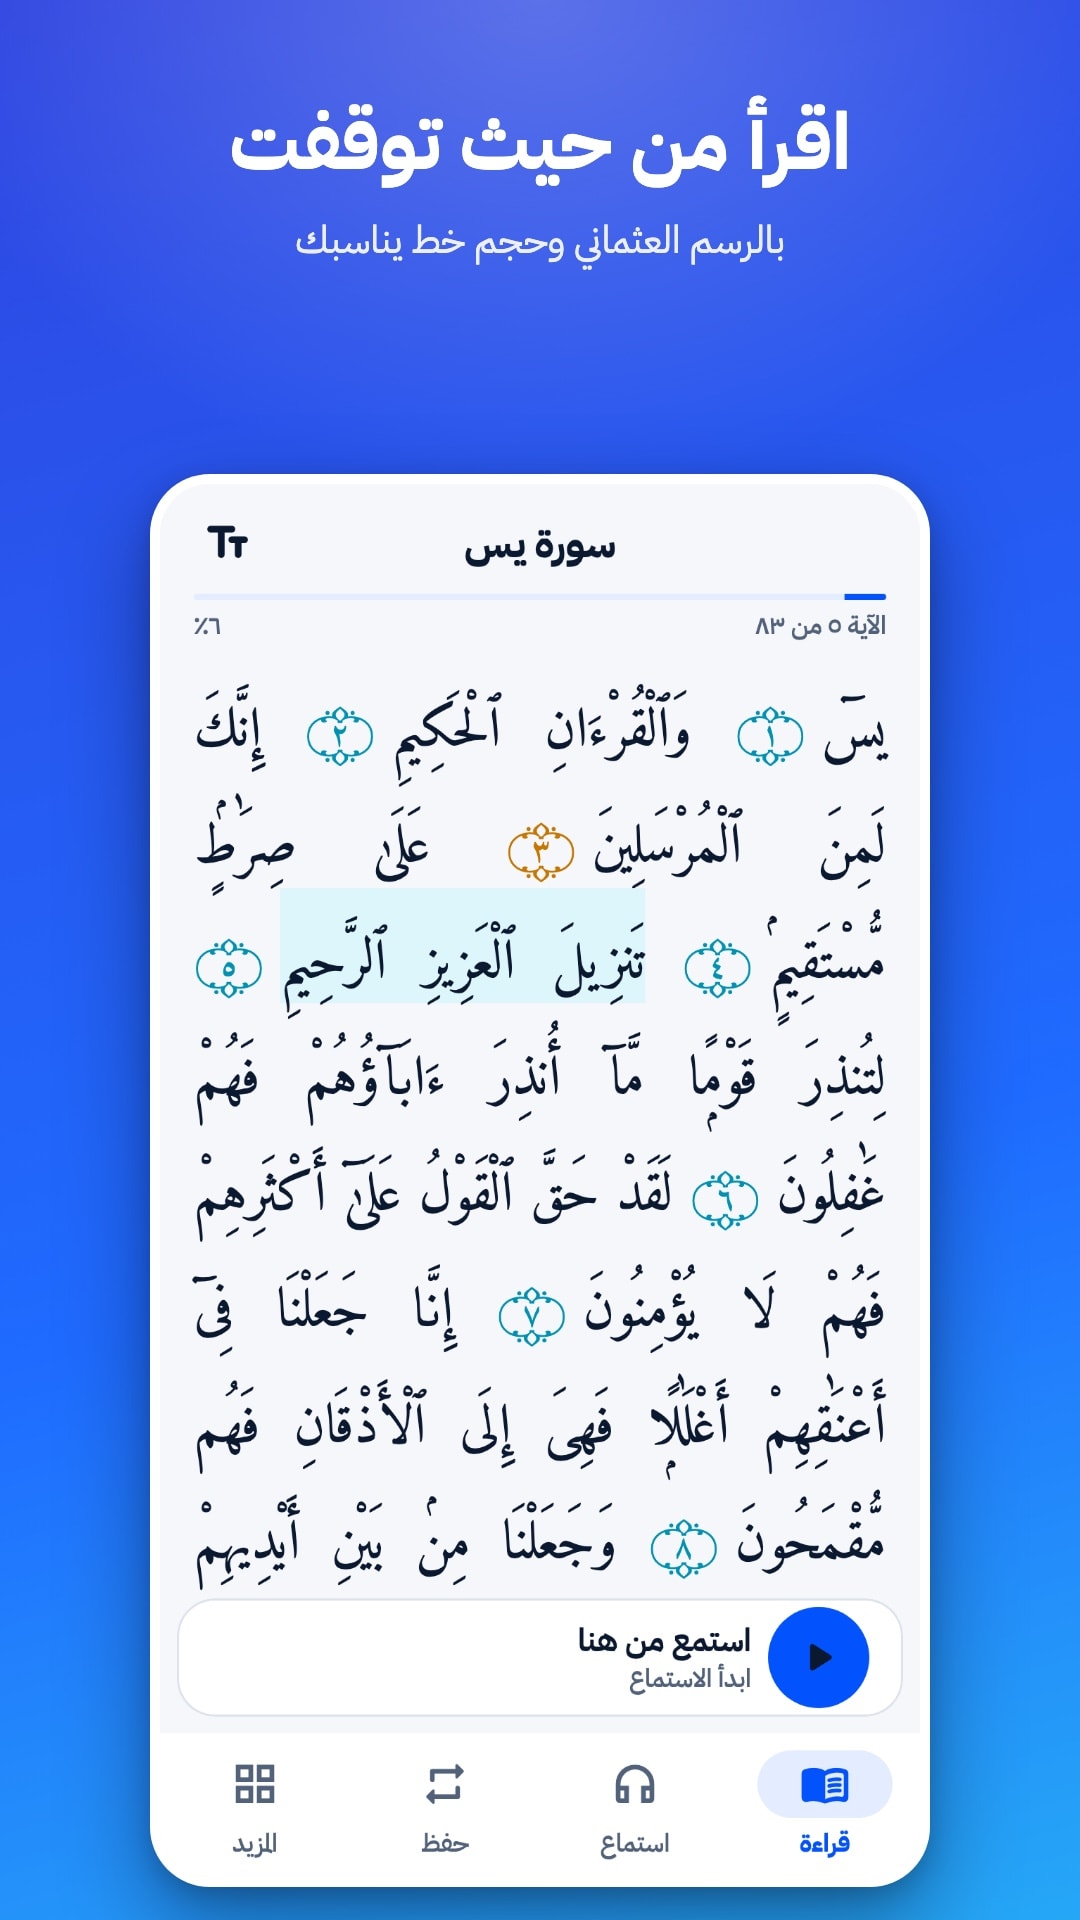 اقرأ من حيث توقفت
بالرسم العثماني وحجم خط يناسبك
سورة يس
الآية ٥ من ٨٣
٦٪
يسٓ ١ وَٱلْقُرْءَانِ ٱلْحَكِيمِ ٢ إِنَّكَ
لَمِنَ ٱلْمُرْسَلِينَ ٣ عَلَىٰ صِرَٰطٍۢ
مُّسْتَقِيمٍۢ ٤ تَنزِيلَ ٱلْعَزِيزِ ٱلرَّحِيمِ ٥
لِتُنذِرَ قَوْمًۭا مَّآ أُنذِرَ ءَابَآؤُهُمْ فَهُمْ
غَٰفِلُونَ ٦ لَقَدْ حَقَّ ٱلْقَوْلُ عَلَىٰٓ أَكْثَرِهِمْ
فَهُمْ لَا يُؤْمِنُونَ ٧ إِنَّا جَعَلْنَا فِىٓ
أَعْنَٰقِهِمْ أَغْلَٰلًۭا فَهِىَ إِلَى ٱلْأَذْقَانِ فَهُم
مُّقْمَحُونَ ٨ وَجَعَلْنَا مِنۢ بَيْنِ أَيْدِيهِمْ
استمع من هنا
ابدأ الاستماع
قراءة
استماع
حفظ
المزيد